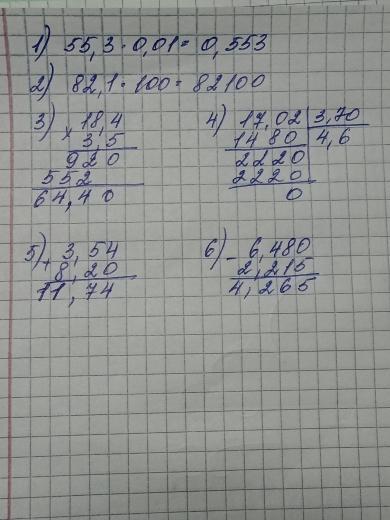 1) 55,3 · 0,01 = 0,553
2) 82,1 · 100 = 82100
3) × 18,4
3,5
920
552
64,40
4) 17,02 | 3,70
1480 | 4,6
2220
2220
0
5) + 3,54
8,20
11,74
6) - 6,480
2,215
4,265